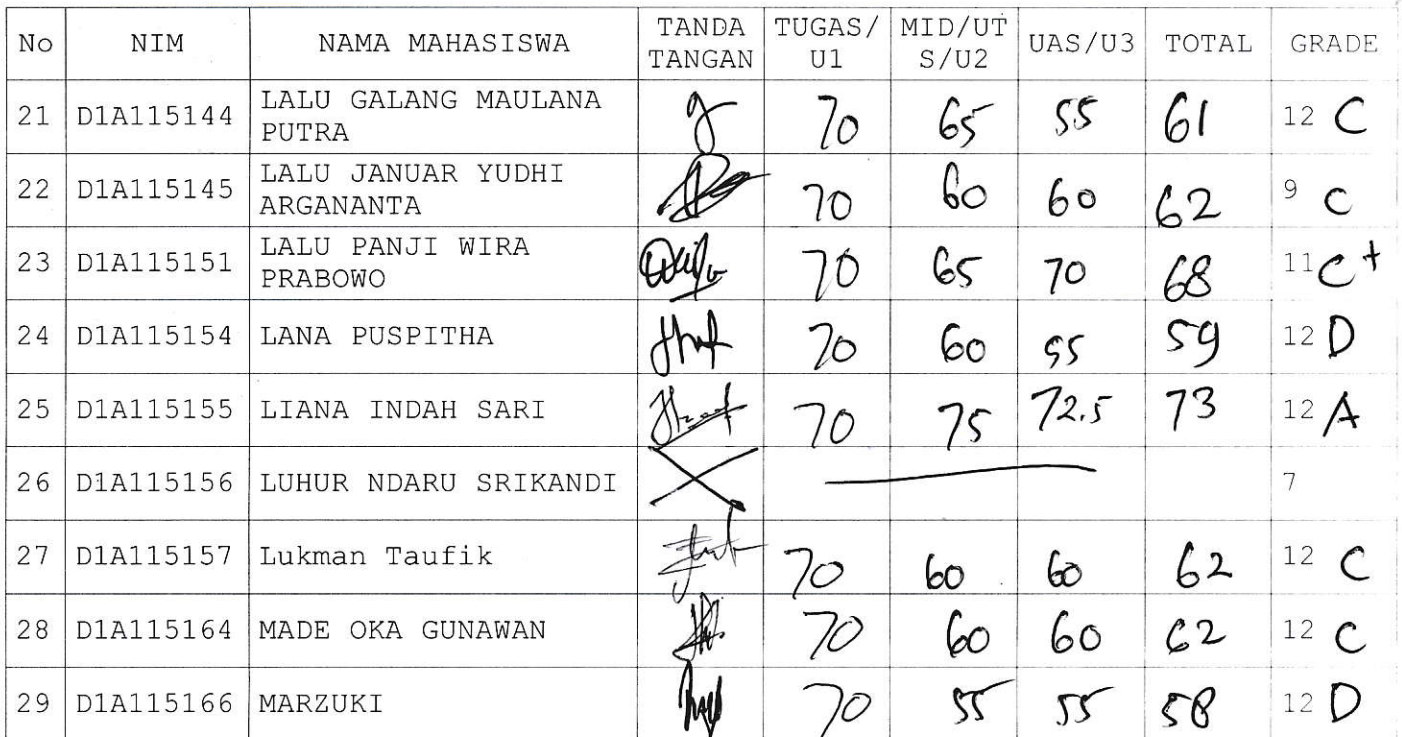 No NIM NAMA MAHASISWA TANDA TANGAN TUGAS/U1 MID/UTS/U2 UAS/U3 TOTAL GRADE
21 D1A115144 LALU GALANG MAULANA PUTRA 70 65 55 61 12 C
22 D1A115145 LALU JANUAR YUDHI ARGANANTA 70 60 60 62 9 C
23 D1A115151 LALU PANJI WIRA PRABOWO 70 65 70 68 11 C+
24 D1A115154 LANA PUSPITHA 70 60 55 59 12 D
25 D1A115155 LIANA INDAH SARI 70 75 72.5 73 12 A
26 D1A115156 LUHUR NDARU SRIKANDI 7
27 D1A115157 Lukman Taufik 70 60 60 62 12 C
28 D1A115164 MADE OKA GUNAWAN 70 60 60 62 12 C
29 D1A115166 MARZUKI 70 55 55 58 12 D